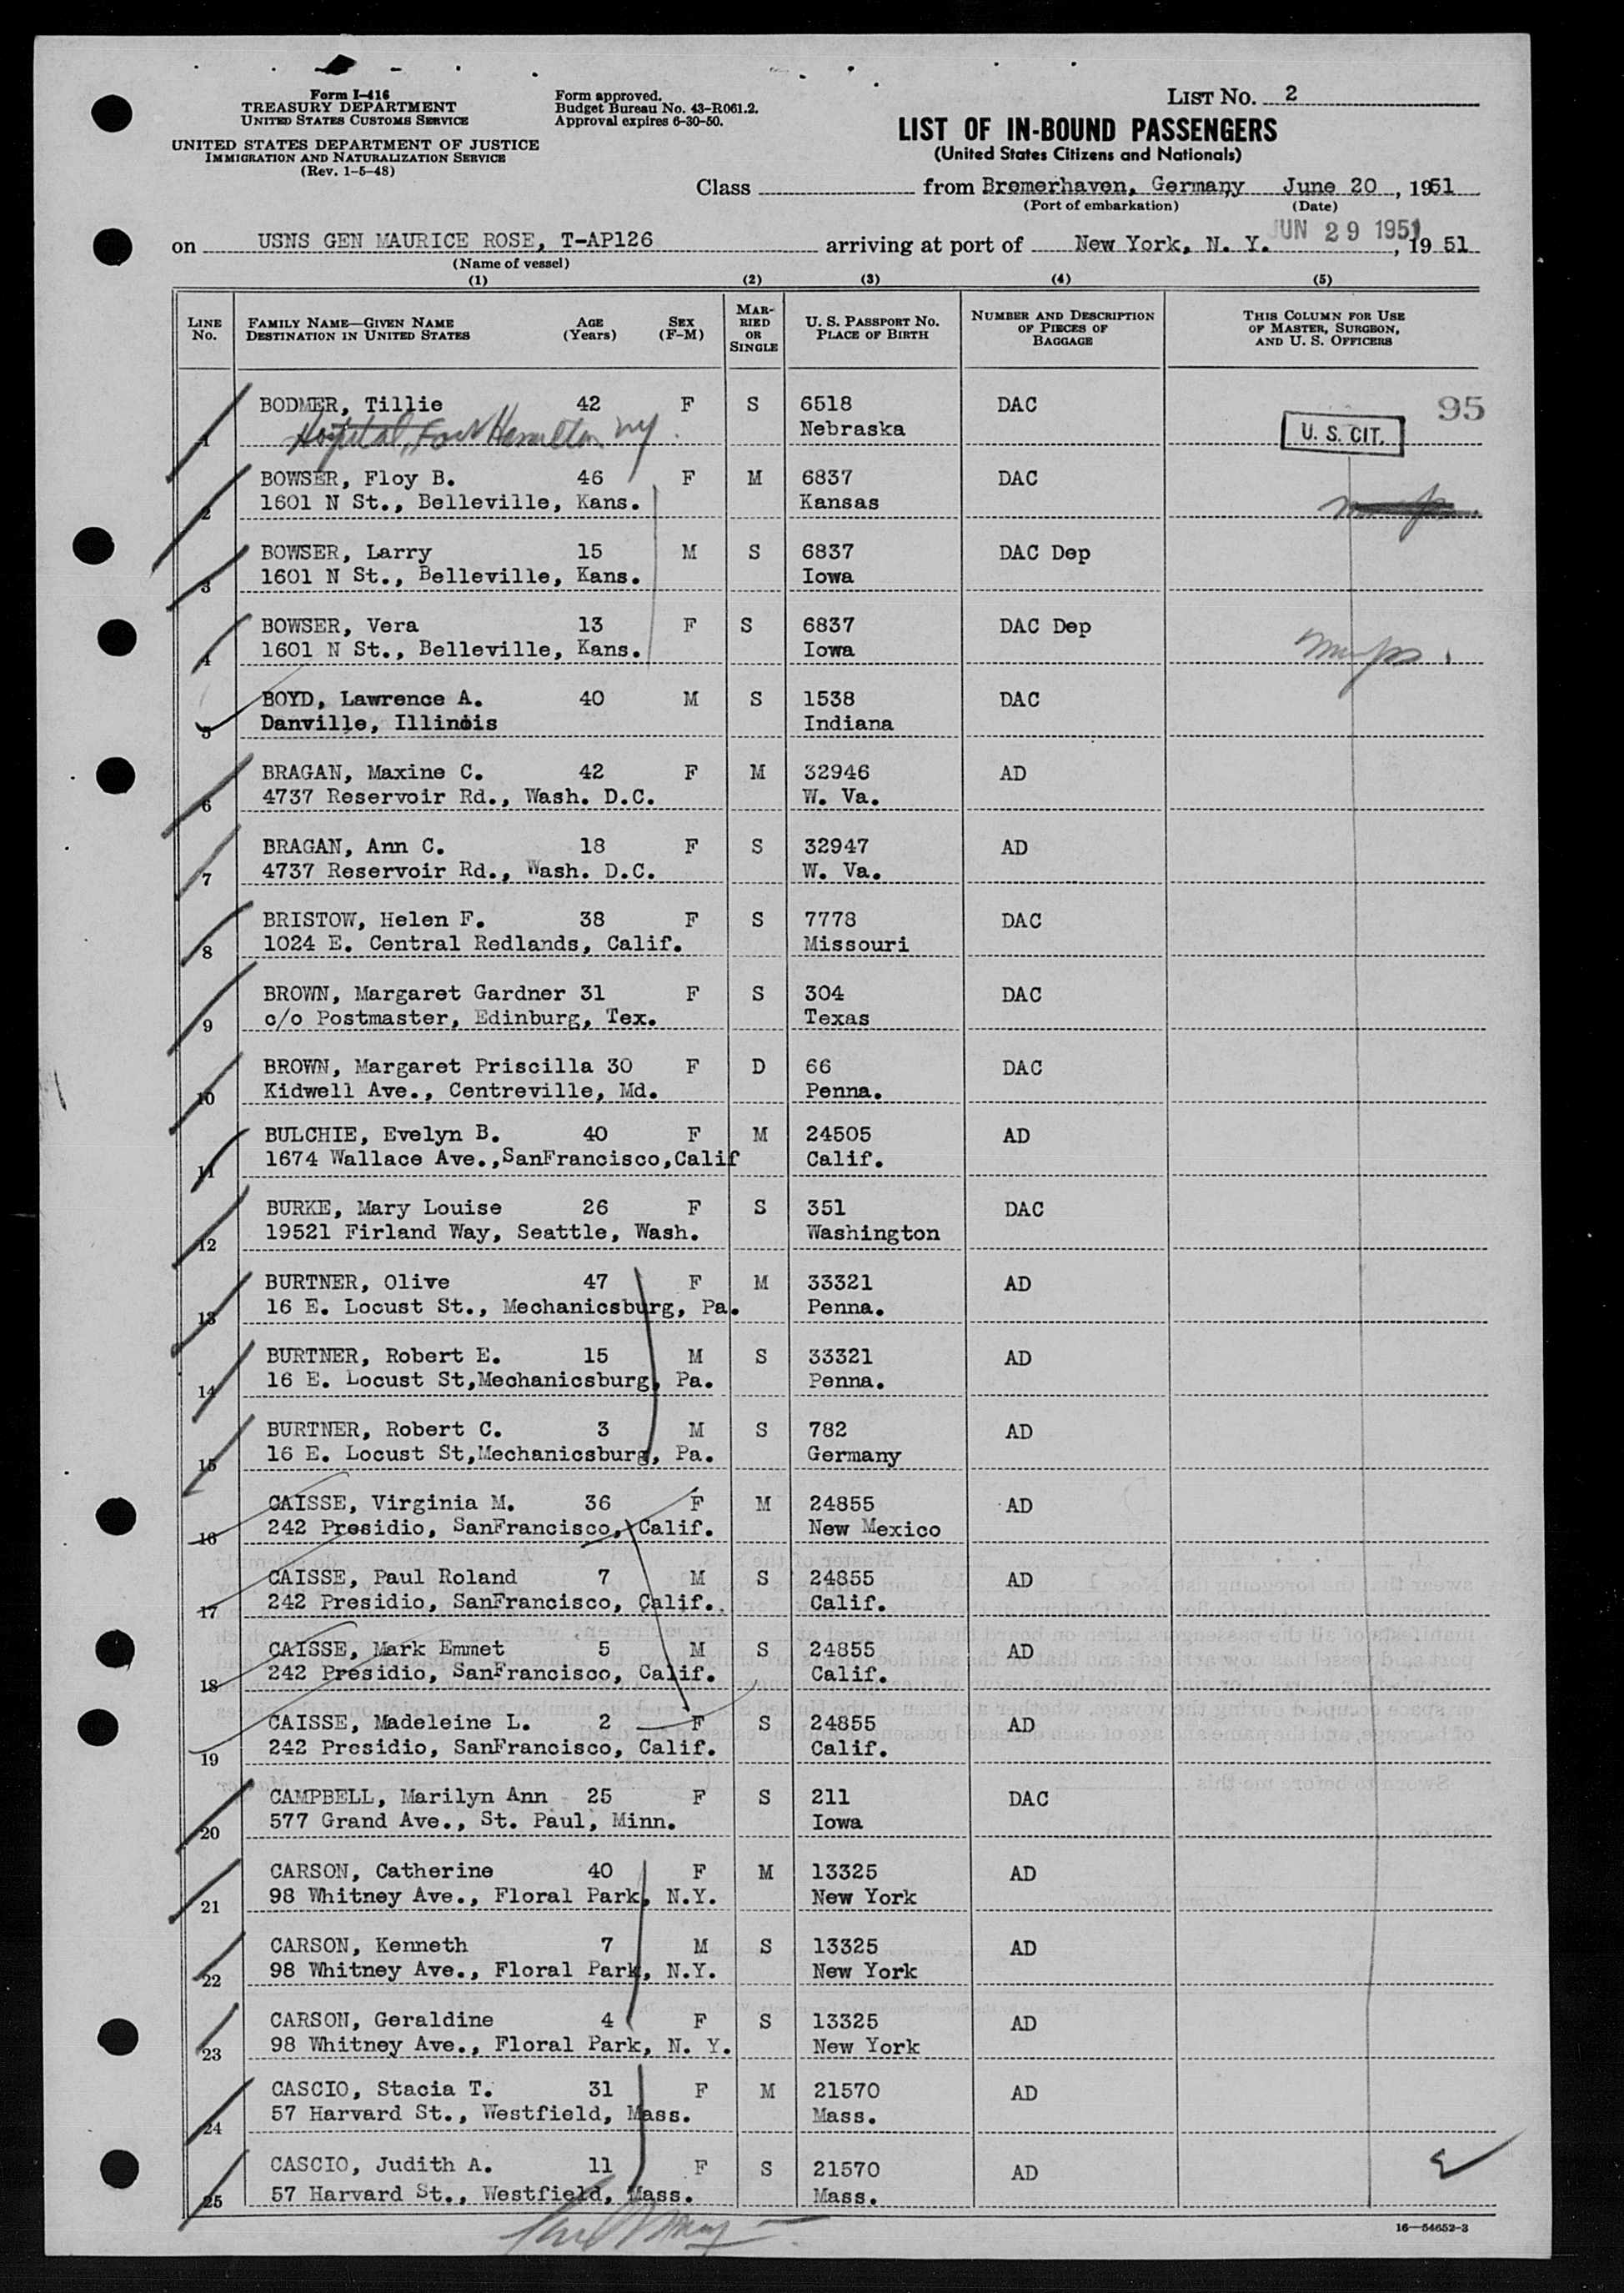 Form I-416
TREASURY DEPARTMENT
UNITED STATES CUSTOMS SERVICE
UNITED STATES DEPARTMENT OF JUSTICE
IMMIGRATION AND NATURALIZATION SERVICE
(Rev. 1-5-48)
Form approved.
Budget Bureau No. 43-R061.2.
Approval expires 6-30-50.
LIST No. 2
LIST OF IN-BOUND PASSENGERS
(United States Citizens and Nationals)
Class from Bremerhaven, Germany June 20, 1951
(Port of embarkation) (Date)
on USNS GEN MAURICE ROSE, T-AP126 arriving at port of New York, N. Y. JUN 29 1951, 1951
(Name of vessel)
(1) (2) (3) (4) (5)
LINE No. FAMILY NAME—GIVEN NAME DESTINATION IN UNITED STATES AGE (Years) SEX (F-M) MARRIED OR SINGLE U. S. PASSPORT No. PLACE OF BIRTH NUMBER AND DESCRIPTION OF PIECES OF BAGGAGE THIS COLUMN FOR USE OF MASTER, SURGEON, AND U. S. OFFICERS
BODMER, Tillie 42 F S 6518 DAC 95
1 Hospital, Fort Hamilton NY. Nebraska U. S. CIT.
BOWSER, Floy B. 46 F M 6837 DAC
2 1601 N St., Belleville, Kans. Kansas
BOWSER, Larry 15 M S 6837 DAC Dep
3 1601 N St., Belleville, Kans. Iowa
BOWSER, Vera 13 F S 6837 DAC Dep
4 1601 N St., Belleville, Kans. Iowa mumps.
BOYD, Lawrence A. 40 M S 1538 DAC
5 Danville, Illinois Indiana
BRAGAN, Maxine C. 42 F M 32946 AD
6 4737 Reservoir Rd., Wash. D.C. W. Va.
BRAGAN, Ann C. 18 F S 32947 AD
7 4737 Reservoir Rd., Wash. D.C. W. Va.
BRISTOW, Helen F. 38 F S 7778 DAC
8 1024 E. Central Redlands, Calif. Missouri
BROWN, Margaret Gardner 31 F S 304 DAC
9 c/o Postmaster, Edinburg, Tex. Texas
BROWN, Margaret Priscilla 30 F D 66 DAC
10 Kidwell Ave., Centreville, Md. Penna.
BULCHIE, Evelyn B. 40 F M 24505 AD
11 1674 Wallace Ave.,SanFrancisco,Calif Calif.
BURKE, Mary Louise 26 F S 351 DAC
12 19521 Firland Way, Seattle, Wash. Washington
BURTNER, Olive 47 F M 33321 AD
13 16 E. Locust St., Mechanicsburg, Pa. Penna.
BURTNER, Robert E. 15 M S 33321 AD
14 16 E. Locust St,Mechanicsburg, Pa. Penna.
BURTNER, Robert C. 3 M S 782 AD
15 16 E. Locust St,Mechanicsburg, Pa. Germany
CAISSE, Virginia M. 36 F M 24855 AD
16 242 Presidio, SanFrancisco, Calif. New Mexico
CAISSE, Paul Roland 7 M S 24855 AD
17 242 Presidio, SanFrancisco, Calif. Calif.
CAISSE, Mark Emmet 5 M S 24855 AD
18 242 Presidio, SanFrancisco, Calif. Calif.
CAISSE, Madeleine L. 2 F S 24855 AD
19 242 Presidio, SanFrancisco, Calif. Calif.
CAMPBELL, Marilyn Ann 25 F S 211 DAC
20 577 Grand Ave., St. Paul, Minn. Iowa
CARSON, Catherine 40 F M 13325 AD
21 98 Whitney Ave., Floral Park, N.Y. New York
CARSON, Kenneth 7 M S 13325 AD
22 98 Whitney Ave., Floral Park, N.Y. New York
CARSON, Geraldine 4 F S 13325 AD
23 98 Whitney Ave., Floral Park, N. Y. New York
CASCIO, Stacia T. 31 F M 21570 AD
24 57 Harvard St., Westfield, Mass. Mass.
CASCIO, Judith A. 11 F S 21570 AD
25 57 Harvard St., Westfield, Mass. Mass.
16—54652-3